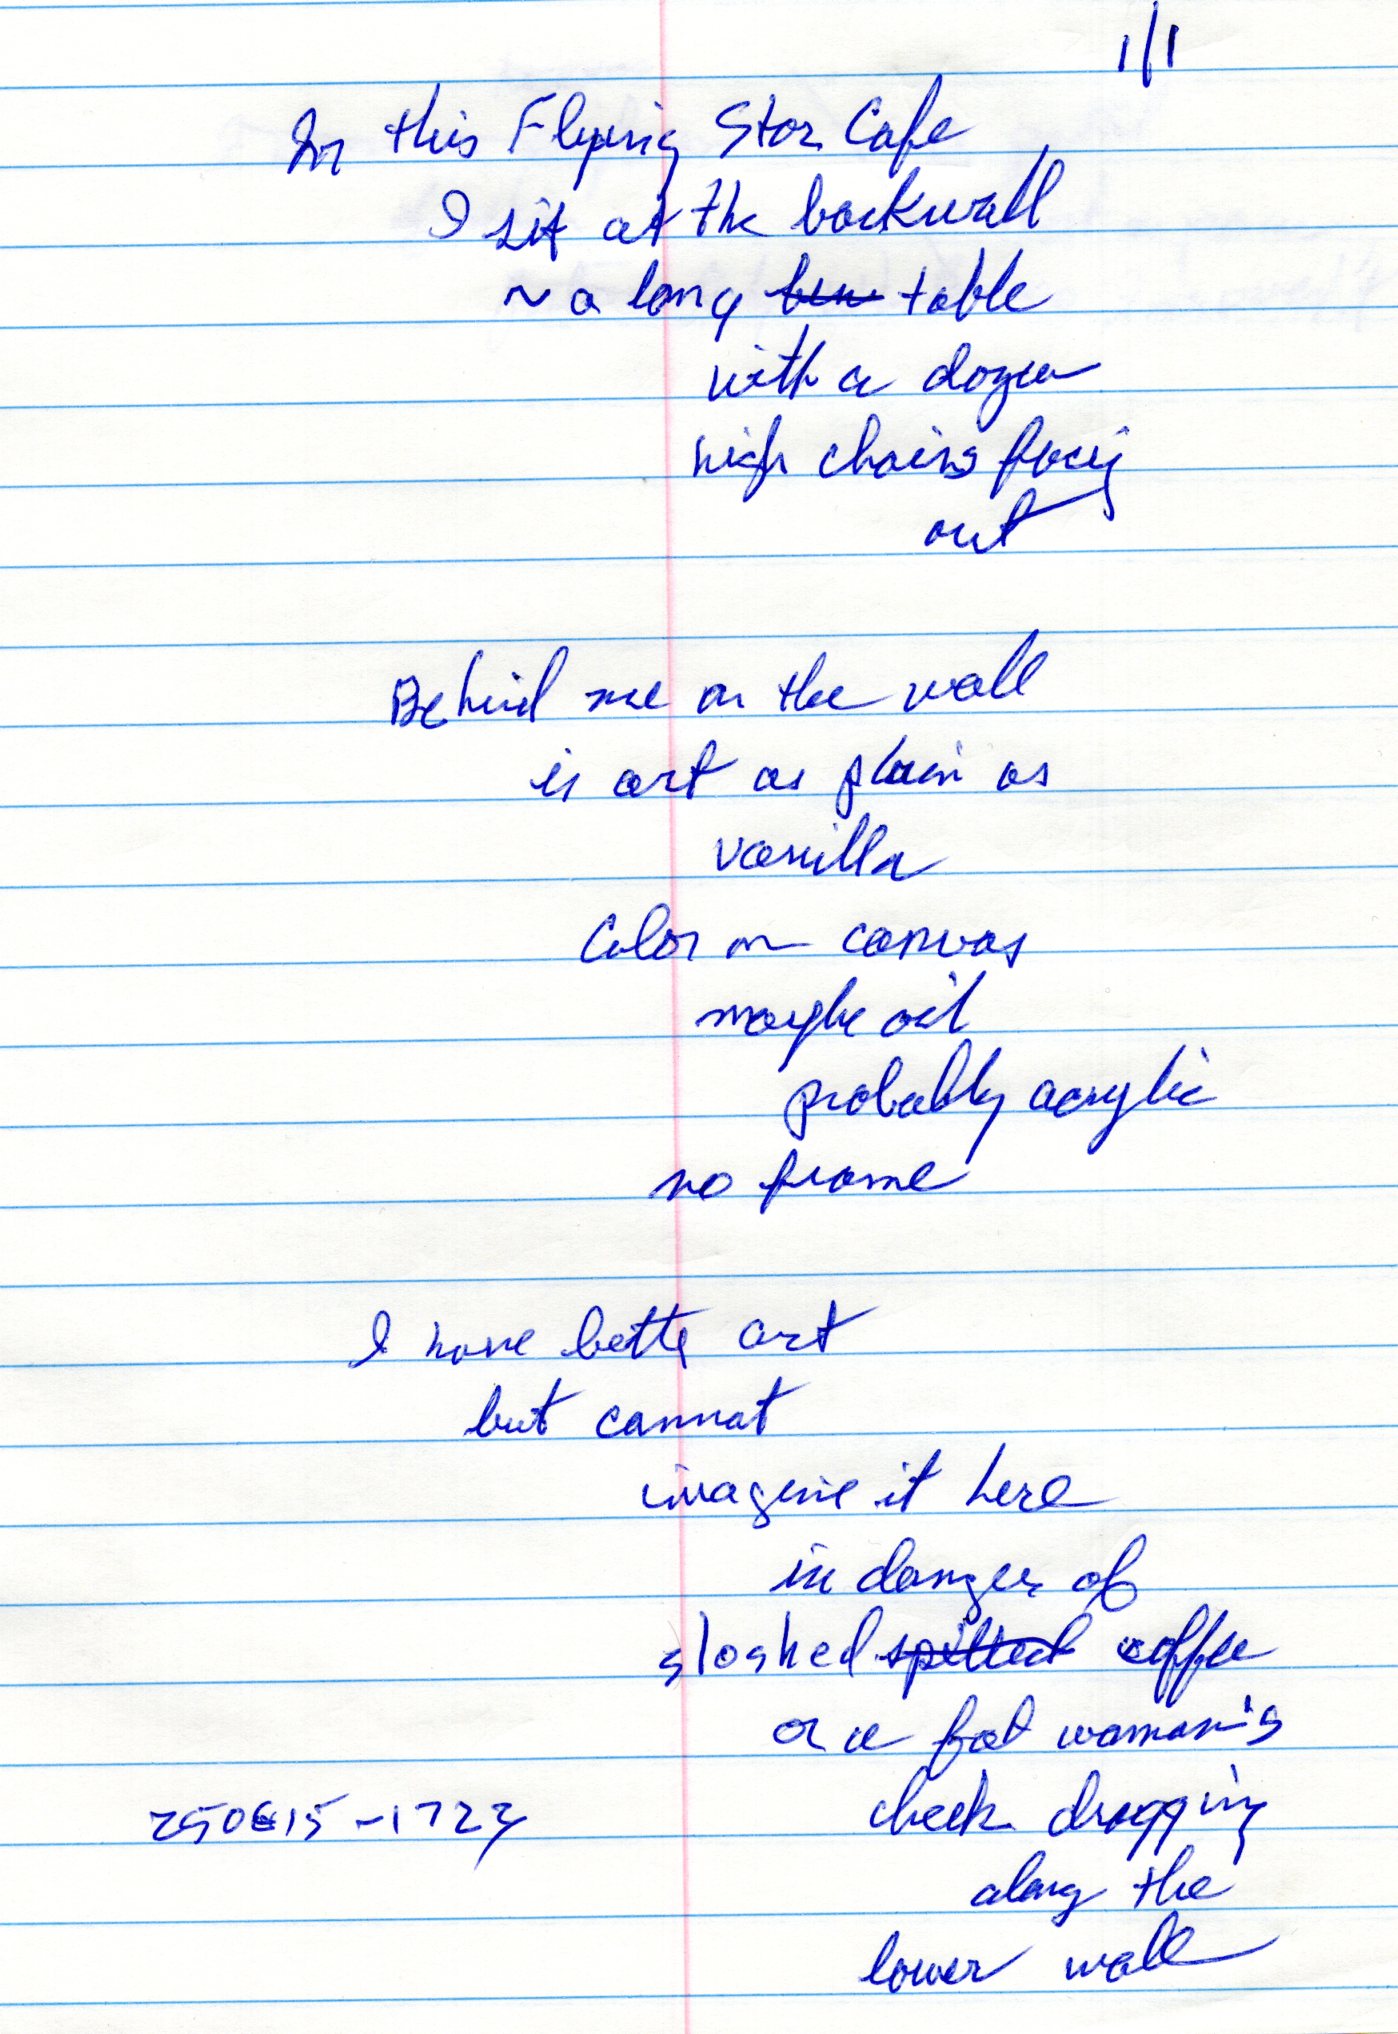 1/1
In this Flying Star Cafe
I sit at the backwall
~ a long ben table
with a dozen
high chairs facing
out
Behind me on the wall
is art as plain as
vanilla
Color on canvas
maybe oil
probably acrylic
no frame
I have better art
but cannot
imagine it here
in danger of
sloshed spilled coffee
or a fat woman's
cheek dragging
along the
250615-1723
lower wall